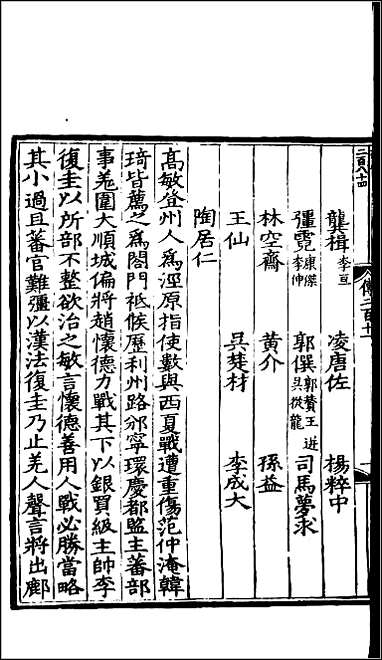 二百八十四
傳二百十一
龔楫 李亘 凌唐佐 楊粹中
彊霓 康傑 李仲 郭僎 郭贊 王迸 吳從龍 司馬夢求
林空齋 黃介 孫益
王仙 吳楚材 李成大
陶居仁
髙敏登州人爲涇原指使數與西夏戰遭重傷范仲淹韓
琦皆薦之爲閤門祗候歷利州路邠寧環慶都監主蕃部
事羌圍大順城偏將趙懷德力戰其下以銀買級主帥李
復圭以所部不整欲治之敏言懷德善用人戰必勝當略
其小過且蕃官難彊以漢法復圭乃止羌人聲言將出鄜